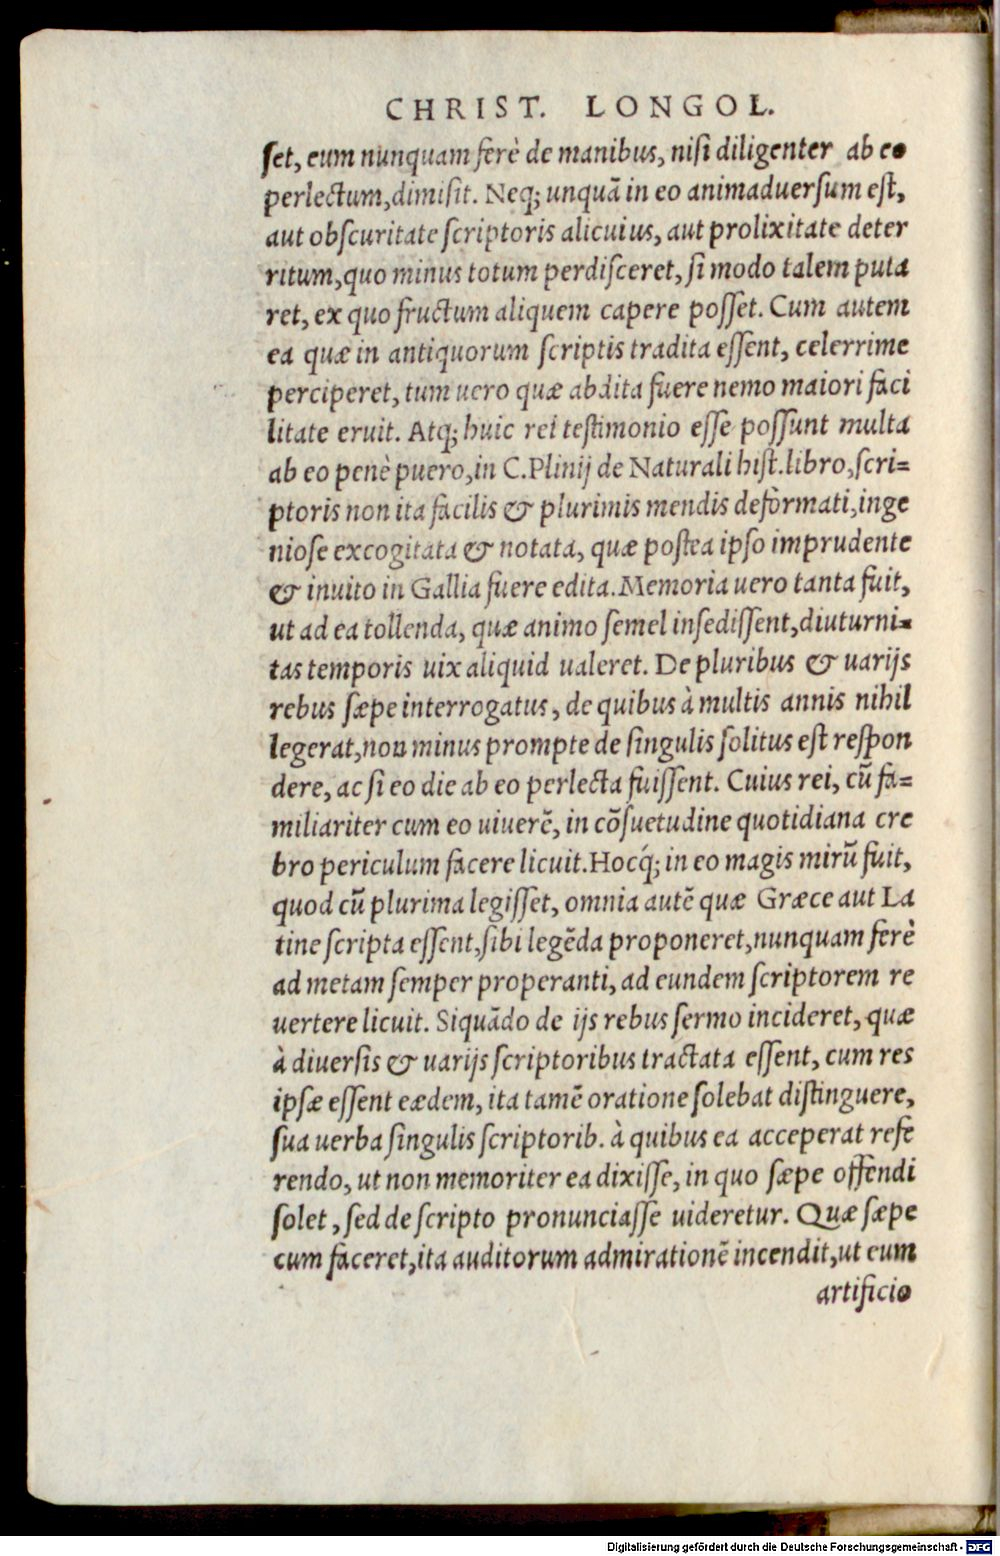 CHRIST. LONGOL.
ſet, eum nunquam ferè de manibus, niſi diligenter ab eo
perlectum, dimiſit. Neq; unquã in eo animaduerſum eſt,
aut obſcuritate ſcriptoris alicuius, aut prolixitate deter
ritum, quo minus totum perdiſceret, ſi modo talem puta
ret, ex quo fructum aliquem capere poſſet. Cum autem
ea quæ in antiquorum ſcriptis tradita eſſent, celerrime
perciperet, tum uero quæ abdita fuere nemo maiori faci
litate eruit. Atq; huic rei teſtimonio eſſe poſſunt multa
ab eo penè puero, in C. Plinij de Naturali hiſt. libro, ſcri=
ptoris non ita facilis & plurimis mendis deformati, inge
nioſe excogitata & notata, quæ poſtea ipſo imprudente
& inuito in Gallia fuere edita. Memoria uero tanta fuit,
ut ad ea tollenda, quæ animo ſemel inſediſſent, diuturni=
tas temporis uix aliquid ualeret. De pluribus & uarijs
rebus ſæpe interrogatus, de quibus à multis annis nihil
legerat, non minus prompte de ſingulis ſolitus eſt reſpon
dere, ac ſi eo die ab eo perlecta fuiſſent. Cuius rei, cũ fa=
miliariter cum eo uiuerẽ, in cõſuetudine quotidiana cre
bro periculum facere licuit. Hocq́; in eo magis mirũ fuit,
quod cũ plurima legiſſet, omnia autẽ quæ Græce aut La
tine ſcripta eſſent, ſibi legẽda proponeret, nunquam ferè
ad metam ſemper properanti, ad eundem ſcriptorem re
uertere licuit. Siquãdo de ijs rebus ſermo incideret, quæ
à diuerſis & uarijs ſcriptoribus tractata eſſent, cum res
ipſæ eſſent eædem, ita tamẽ oratione ſolebat diſtinguere,
ſua uerba ſingulis ſcriptorib. à quibus ea acceperat refe
rendo, ut non memoriter ea dixiſſe, in quo ſæpe offendi
ſolet, ſed de ſcripto pronunciaſſe uideretur. Quæ ſæpe
cum faceret, ita auditorum admirationẽ incendit, ut eum
artificio
Digitalisierung gefördert durch die Deutsche Forschungsgemeinschaft - DFG